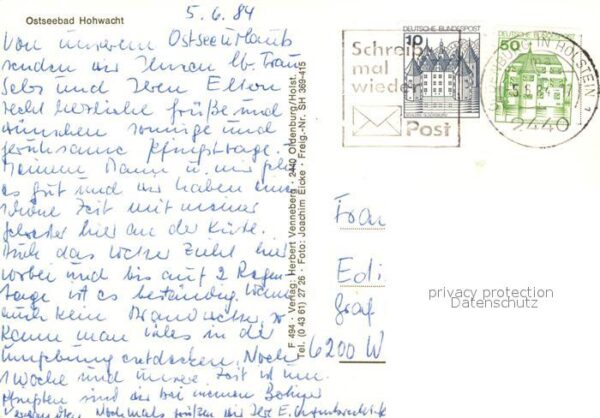 Ostseebad Hohwacht
5.6.84
Von unserem Ostseeurlaub
senden wir Ihnen lb. Frau
und Ihren Eltern
recht herzliche Grüße und
wünschen sonnige und
geruhsame Pfingsttage.
Meinem Mann u. mir geht
es gut und wir haben eine
schöne Zeit mit meiner
hier an der Küste.
Auch das Wetter zieht hier
vorbei und bis auf 2 Regen-
tage ist es beständig, wenn
auch kein
kann man vieles in der
Umgebung entdecken. Noch
1 Woche und unsere Zeit ist um.
Pfingsten sind wir bei meinem
Nochmals grüßen wir Ihre
F 494 · Verlag: Herbert Venneberg · 2440 Oldenburg/Holst.
Tel. (0 43 61) 27 26 · Foto: Joachim Eicke · Freig.-Nr. SH 369-415
Schreib
mal
wieder
Post
10
DEUTSCHE BUNDESPOST
50
DEUTSCHE BUNDESPOST
IN HOLSTEIN 1
2440
Frau
Edi
Graf
6200 W
privacy protection
Datenschutz